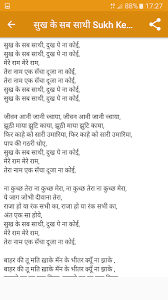 88% 17:27
सुख के सब साथी Sukh Ke...
सुख के सब साथी, दुख मे ना कोई,
सुख के सब साथी, दुख मे ना कोई,
मेरे राम मेरे राम,
तेरा नाम एक सँचा दूजा ना कोई,
तेरा नाम एक सँचा दूजा ना कोई,
सुख के सब साथी, दुख मे ना कोई,
जीवन आनी जानी च्चाया, जीवन आनी जानी च्चाया,
झूठी माया झूटि काया, झूठी माया झूटि काया,
फिर काहे को सारी उमारिया, फिर काहे को सारी उमारिया,
पाप की गठरी धोए,
सुख के सब साथी, दुख मे ना कोई,
सुख के सब साथी, दुख मे ना कोई,
मेरे राम मेरे राम,
तेरा नाम एक सँचा दूजा ना कोई,
ना कुच्छ तेरा ना कुच्छ मेरा, ना कुच्छ तेरा ना कुच्छ मेरा,
ये जाग जोगी दीवाना तेरा,
राजा हो या रंक सभी का, राजा हो या रंक सभी का,
अंत एक सा होये,
सुख के सब साथी, दुख मे ना कोई,
मेरे राम मेरे राम,
तेरा नाम एक सँचा दूजा ना कोई,
बाहर की तू माति खाके मॅन के भीतर क्यूँ ना झाके ,
बाहर की तू माति खाके मॅन के भीतर क्यूँ ना झाके ,